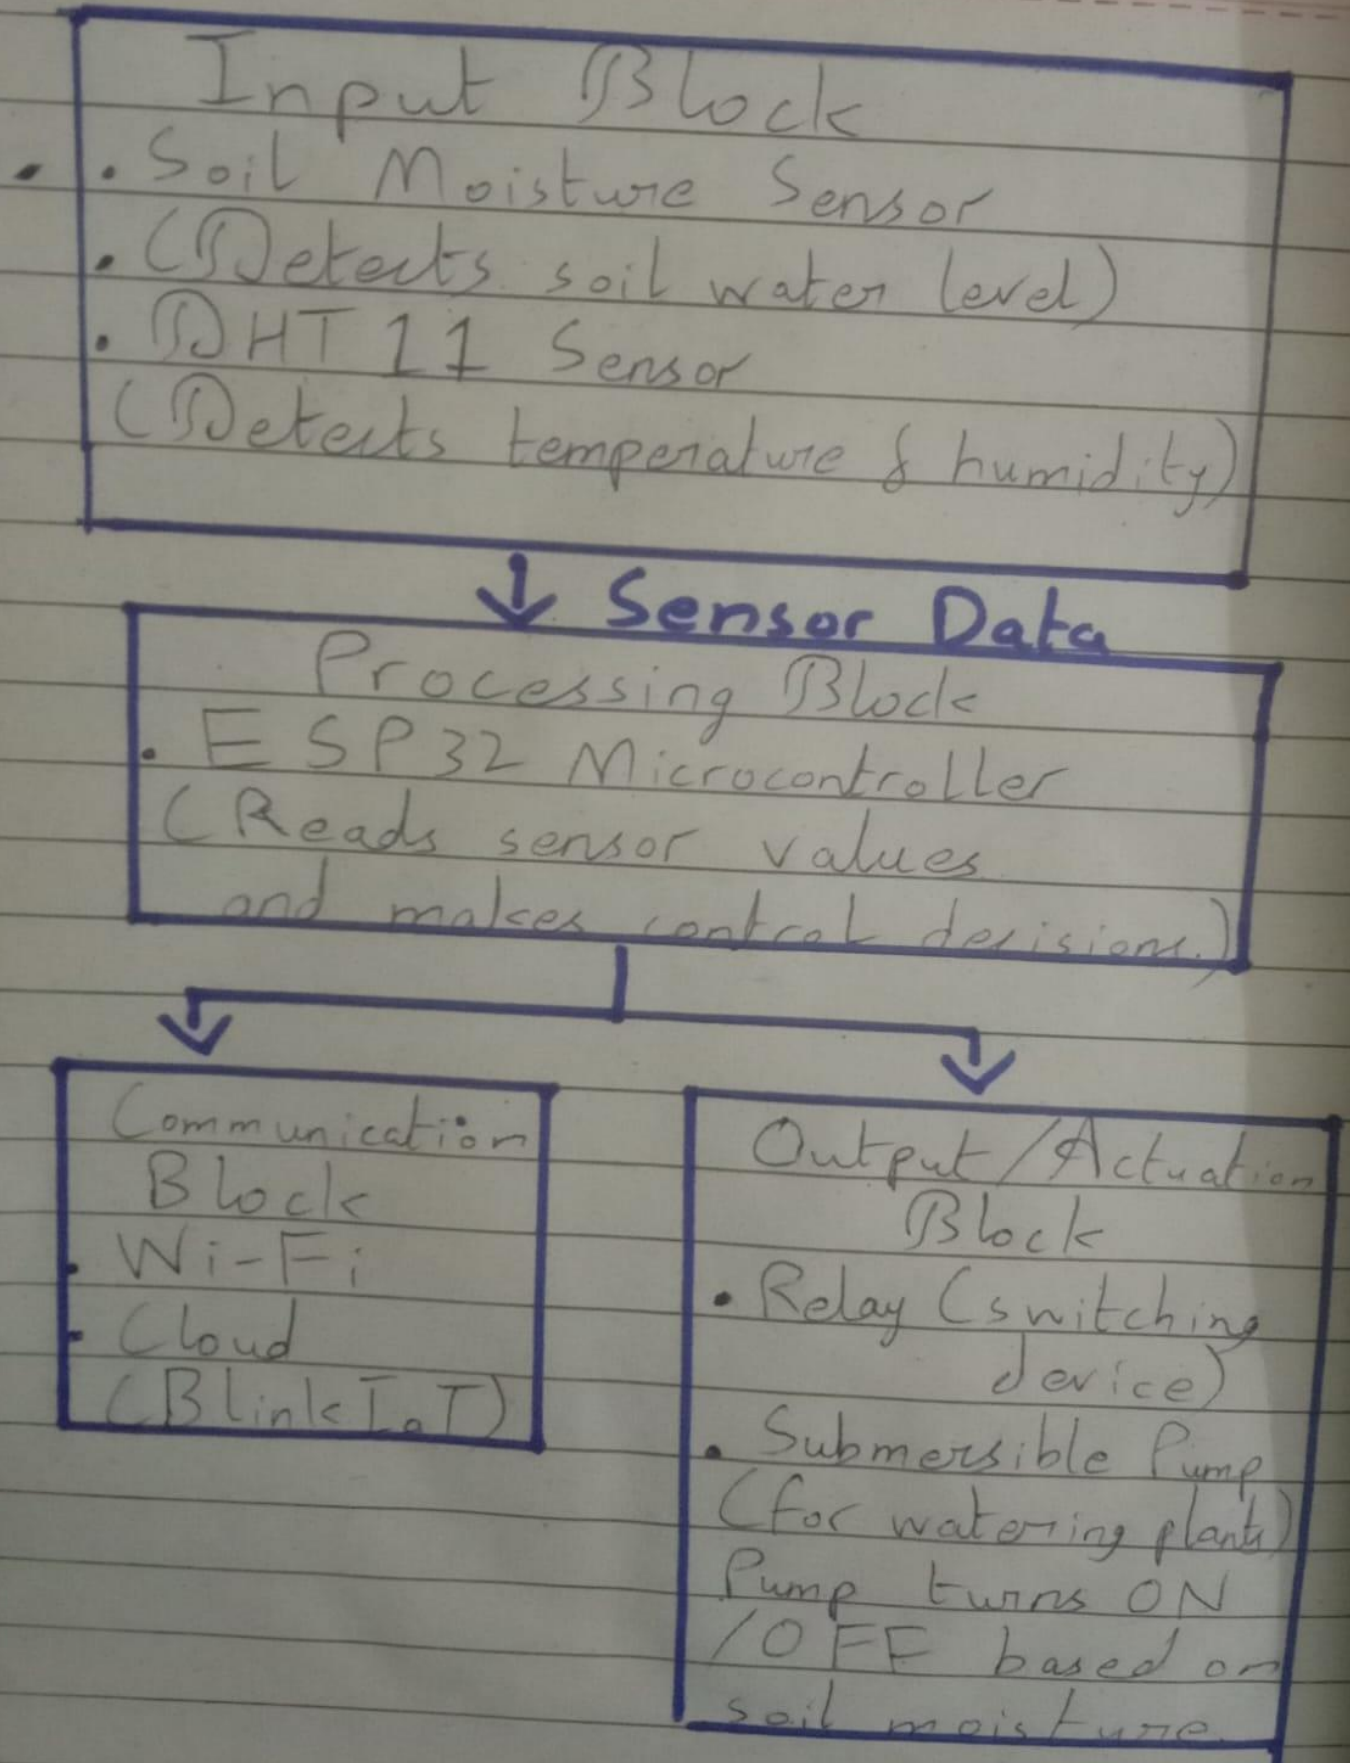 Input Block
. . Soil Moisture Sensor
. (Detects soil water level)
. DHT 11 Sensor
(Detects temperature & humidity)
Sensor Data
Processing Block
. ESP32 Microcontroller
(Reads sensor values
and makes control decisions.)
Communication
Block
. Wi-Fi
. Cloud
(Blink IoT)
Output/Actuation
Block
. Relay (switching
device)
. Submersible Pump
(for watering plants)
Pump turns ON
/OFF based on
soil moisture.